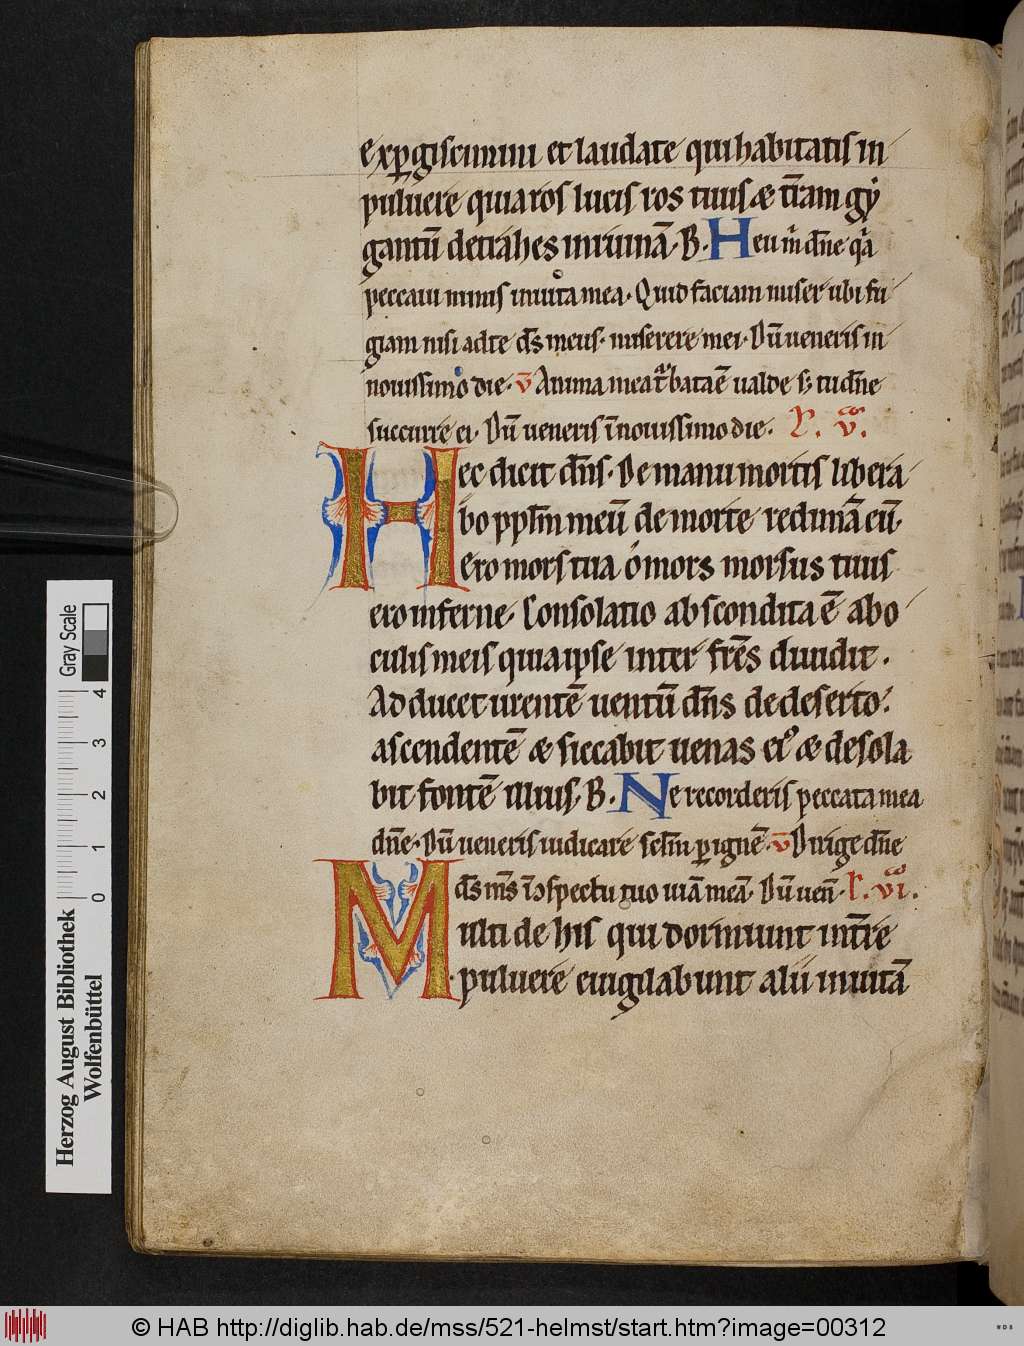 exp̱gisciminī et laudate qui habitatis in
puluere quia ros lucis ros tuus æ t̄ram gy
gantū detrahes in ruinā. R̸. Heu m̄ dn̄e q̄a
peccaui nimis in uita mea. Quid faciam miser ubi fu
giam nisi ad te ds̄ meus. miserere mei. Dū ueneris in
nouissimo die. v̄ Anima mea t̄bata ē ualde s; tu dn̄e
succurre ei. Dū ueneris ī nouissimo die. L. v.
Hec dicit dn̄s. De manu mortis libera
bo pplm̄ meū de morte redimā eū.
Ero mors tua ó mors morsus tuus
ero inferne. Consolatio abscondita ē ab o
culis meis quia ipse inter fr̄es diuidit.
Adducet urentē uentū dn̄s de deserto
ascendentē æ siccabit uenas ei⁹ æ desola
bit fontē illius. R̸. Ne recorderis peccata mea
dn̄e. Dū ueneris iudicare sclm̄ p̱ ignē. v̄ Dirige dn̄e
ds̄ ms̄ ī ɔspectu tuo uiā meā. Dū uen̄. L. vi.
Multi de his qui dormiunt in t̄re
puluere euigilabunt alii in uitā
Herzog August Bibliothek
Wolfenbüttel
0 1 2 3 4
Gray Scale
© HAB http://diglib.hab.de/mss/521-helmst/start.htm?image=00312